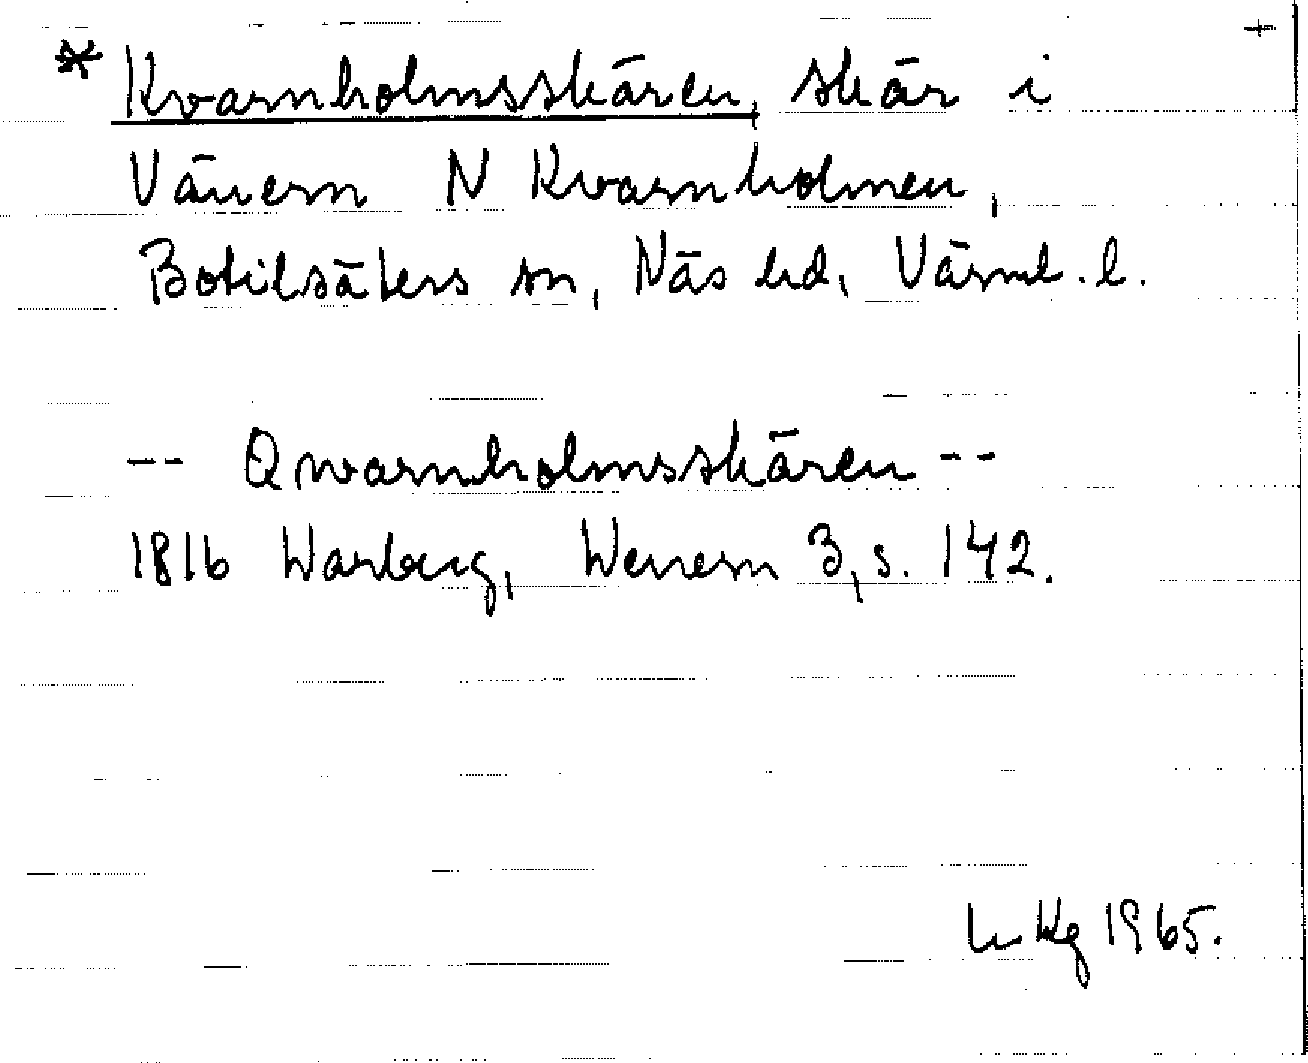 * Kvarnholmsskären, skär i +
Vänern N Kvarnholmen,
Botilsäters sn, Näs hd, Värml. l.
-- Qwarnholmsskären --
1816 Warberg, Wenern 3, s. 142.
1965.